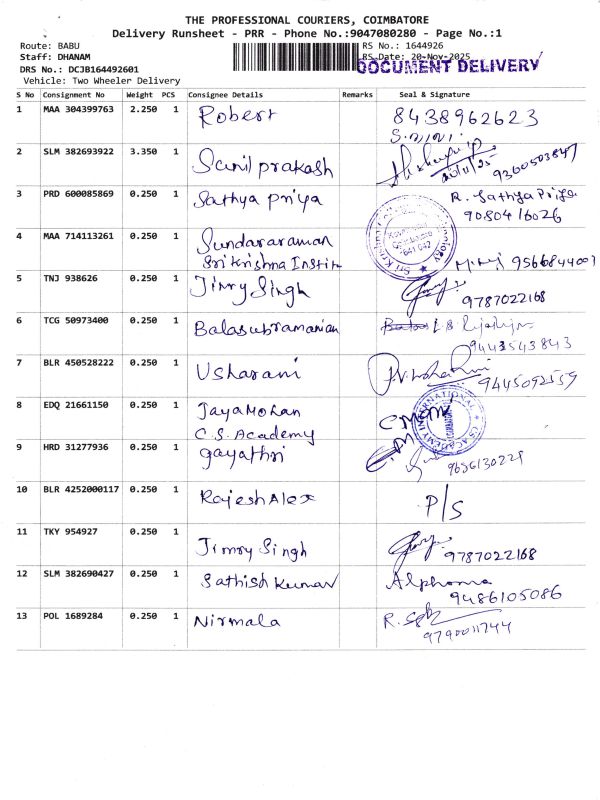 THE PROFESSIONAL COURIERS, COIMBATORE
Delivery Runsheet - PRR - Phone No.:9047080280 - Page No.:1
Route: BABU
RS No.: 1644926
Staff: DHANAM
RS Date: 20-Nov-2025
DRS No.: DCJB164492601
DOCUMENT DELIVERY
Vehicle: Two Wheeler Delivery
S No Consignment No Weight PCS Consignee Details Remarks Seal & Signature
1 MAA 304399763 2.250 1 Robert 8438962623
2 SLM 382693922 3.350 1 Sunil prakash 9360503847
3 PRD 600085869 0.250 1 Sathya priya R. Sathya Priya
9080416026
4 MAA 714113261 0.250 1 Sundararaman
Sri Krishna Institu 9566844007
5 TNJ 938626 0.250 1 Jimry Singh
9787022168
6 TCG 50973400 0.250 1 Balasubramanian
9443543843
7 BLR 450528222 0.250 1 Usharani 9445092559
8 EDQ 21661150 0.250 1 JayaMohan
C.S. Academy
CS ACADEMY INTERNATIONAL
9 HRD 31277936 0.250 1 gayathri
9656130221
10 BLR 4252000117 0.250 1 Rajesh Alex P/S
11 TKY 954927 0.250 1 Jimry Singh 9787022168
12 SLM 382690427 0.250 1 Sathish Kumar Alphonsa
9486105086
13 POL 1689284 0.250 1 Nirmala
9790011744